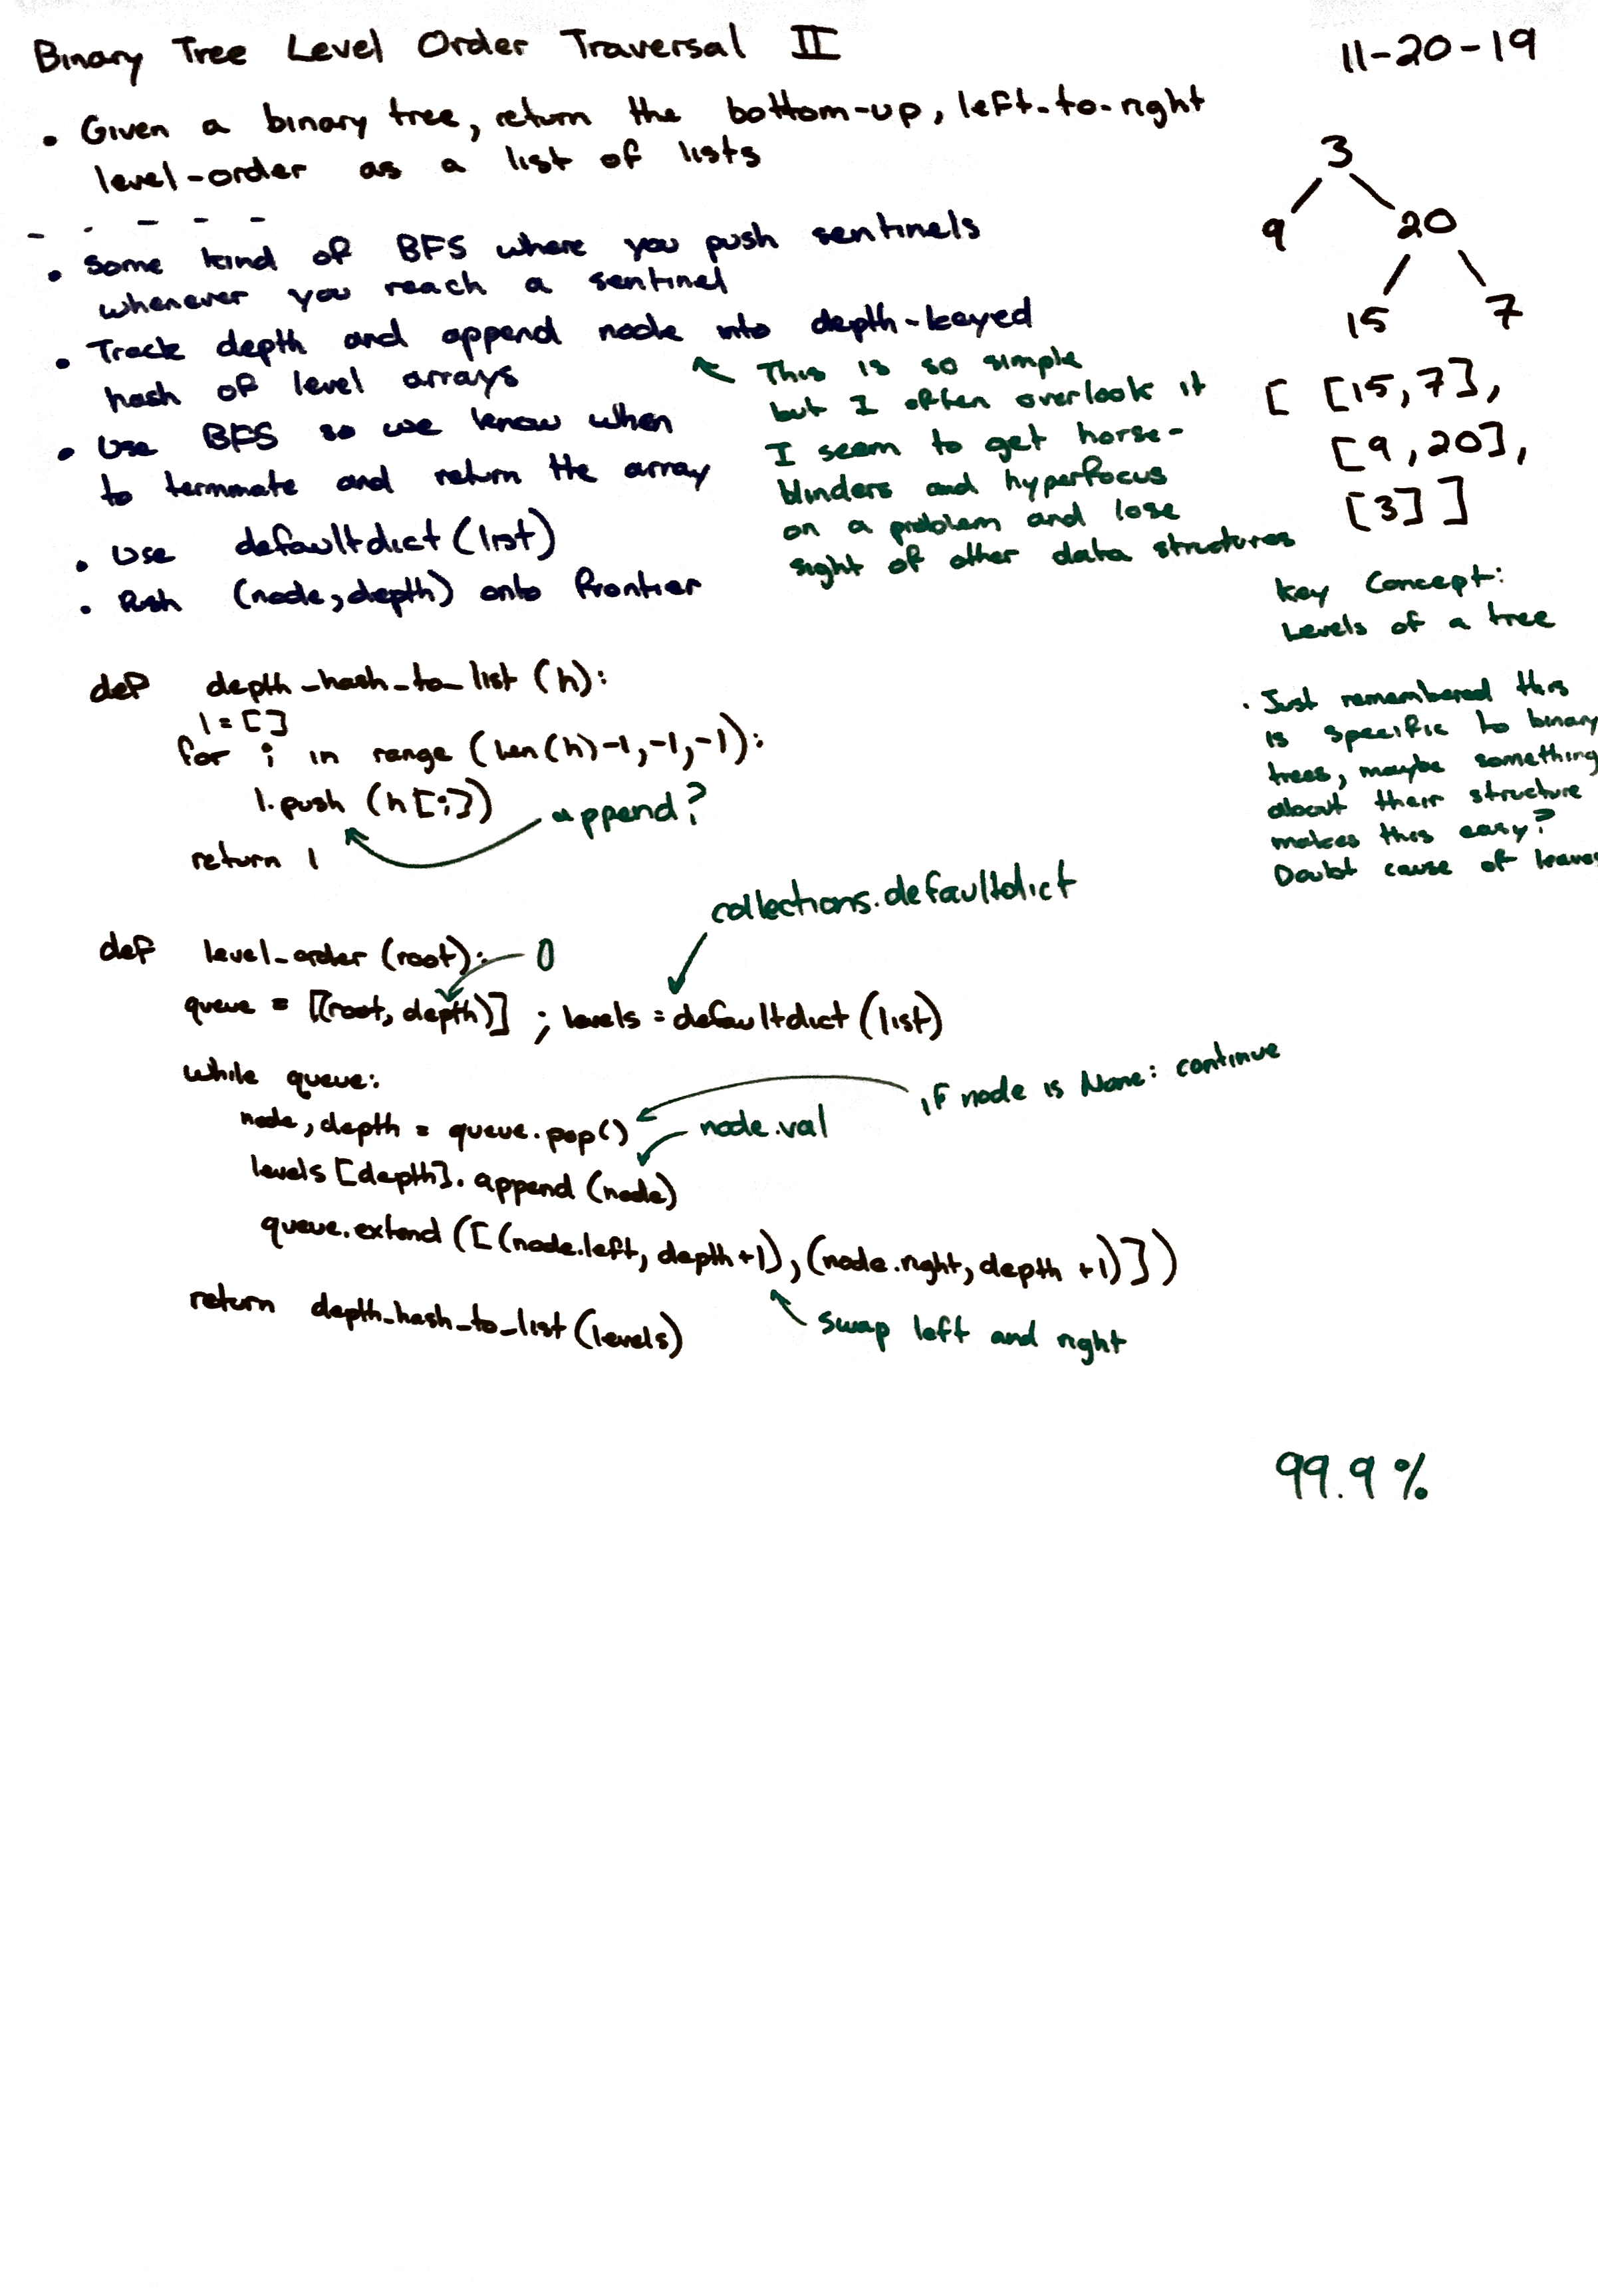 Binary Tree Level Order Traversal II
11-20-19
• Given a binary tree, return the bottom-up, left-to-right
level-order as a list of lists
- - - - -
• Some kind of BFS where you push sentinels
whenever you reach a sentinel
• Track depth and append node into depth-keyed
hash of level arrays
• Use BFS so we know when
to terminate and return the array
• Use defaultdict(list)
• Push (node, depth) onto frontier
This is so simple
but I often overlook it
I seem to get horse-
blinders and hyperfocus
on a problem and lose
sight of other data structures
3
9 20
15 7
[ [15, 7],
[9, 20],
[3] ]
Key Concept:
Levels of a tree
• Just remembered this
is specific to binary
trees, maybe something
about their structure
makes this easy?
Doubt cause of leaves
def depth_hash_to_list (h):
l = []
for i in range (len(h)-1,-1,-1):
l.push (h[i])
append?
return l
collections.defaultdict
def level_order (root):
0
queue = [(root, depth)] ; levels = defaultdict (list)
while queue:
if node is None: continue
node, depth = queue.pop()
node.val
levels [depth]. append (node)
queue.extend ([(node.left, depth+1), (node.right, depth +1)])
return depth_hash_to_list (levels)
Swap left and right
99.9%